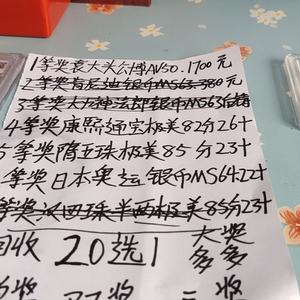 1等奖袁大头公博AV50.1700元
2等奖肯尼迪银币MS63.380元
3等奖大方神法郎银币MS63
4等奖康熙通宝极美82分26十
5等奖隋五珠极美85分23十
等奖日本奥运银币MS6422十
等奖汉四珠半两极美85分23十
回收 20选1 大奖多多
奖 奖